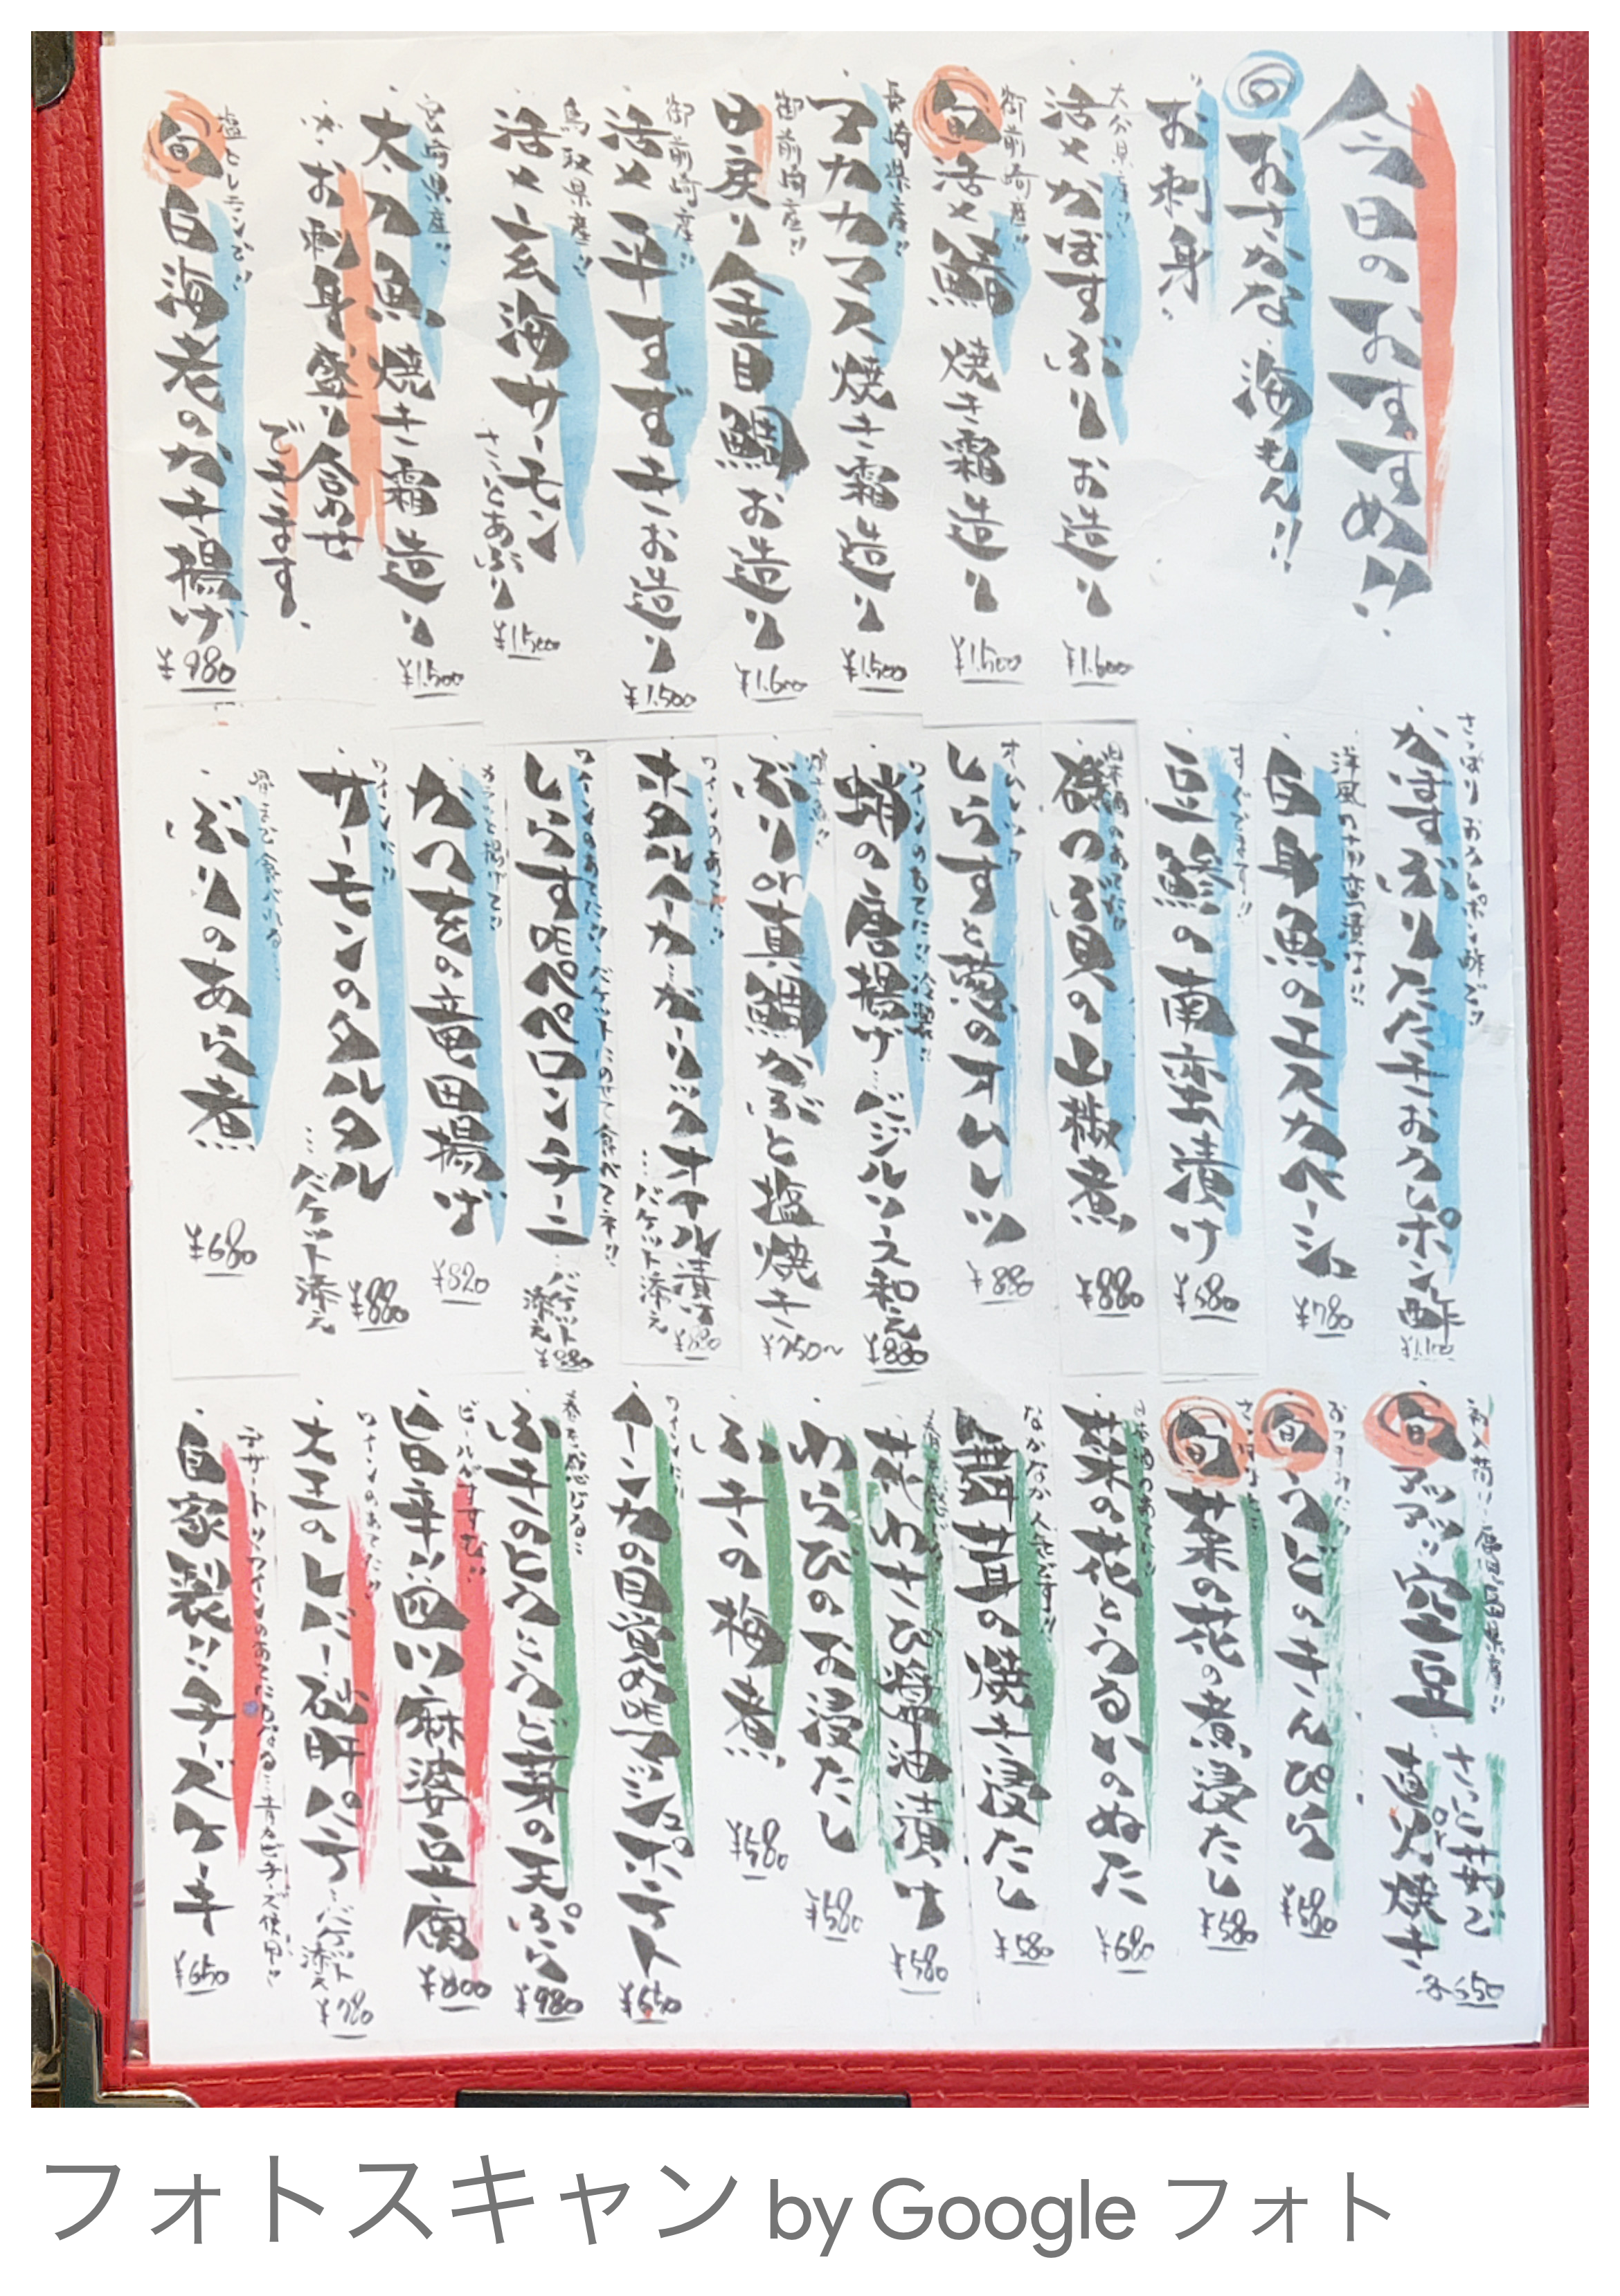 今日のおすすめ!!
旬おさかな海もん!!
お刺身
大分県産!!
活〆かぼすぶりお造り
¥1.600
御前崎産!!
旬活〆鰆焼き霜造り
¥1.500
長崎県産!!
アカカマス焼き霜造り
¥1.500
御前崎産!!
日戻り金目鯛お造り
¥1.600
御前崎産!!
活〆平すずきお造り
¥1.500
鳥取県産!!
活〆玄海サーモン
さっとあぶり
¥1.500
宮崎県産!!
太刀魚焼き霜造り
¥1.500
お刺身盛り合わせ
できます。
塩とレモンで!!
旬白海老のかき揚げ
¥980
さっぱりおろしポン酢で!!
かすぶりたたきおろしポン酢
¥1.100
洋風の南蛮漬け!!
白身魚のエスカベーシュ
¥780
すぐできます!!
豆鯵の南蛮漬け
¥580
日本酒のあてに!!
磯つぶ貝の山椒煮
¥880
しらすと葱のオムレツ
¥880
ワインのあてに!!冷製!!
蛸の唐揚げ…バジルソース和え
¥880
焼き魚!!
ぶりor真鯛かぶと塩焼き
¥750~
ワインのあてに!!
ホタルイカガーリックオイル漬け
…バケット添え
¥880
ワインのあてに!!バケットにのせて食べてネ!!
しらすdeペペロンチーニ
…バケット添え
¥880
カラッと揚げて!!
かつをの竜田揚げ
¥820
ワインに!!
サーモンのタルタル
…バケット添え
¥880
骨まで食べれる…
ぶりのあら煮
¥680
初入荷!!鹿児島県産!!
旬アツアツ空豆…さっと茹で
or
直火焼き
各550
おつまみに!!
旬うどのきんぴら
¥580
旬菜の花の煮浸たし
¥580
日本酒のあてに!!
菜の花とうるいのぬた
¥680
なかなか人気です!!
舞茸の焼き浸たし
¥580
春を感じる…
花わさび醤油漬け
¥580
わらびのお浸たし
¥580
ふきの梅煮
¥580
ワインに!!
インカの目覚めdeマッシュポテト
¥650
春を感じる…
ふきのとうとうど芽の天ぷら
¥980
ビールがすすむ!!
旨辛!!四川麻婆豆腐
¥800
ワインのあてに!!
大王のレバー砂肝パテ
…バケット添え
¥780
自家製!!チーズケーキ
¥650
フォトスキャン by Google フォト